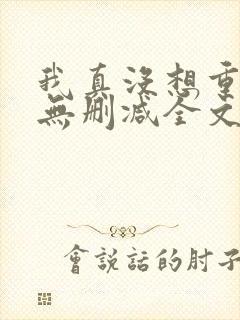 我真沒想重
無刪減全文
會說話的肘子